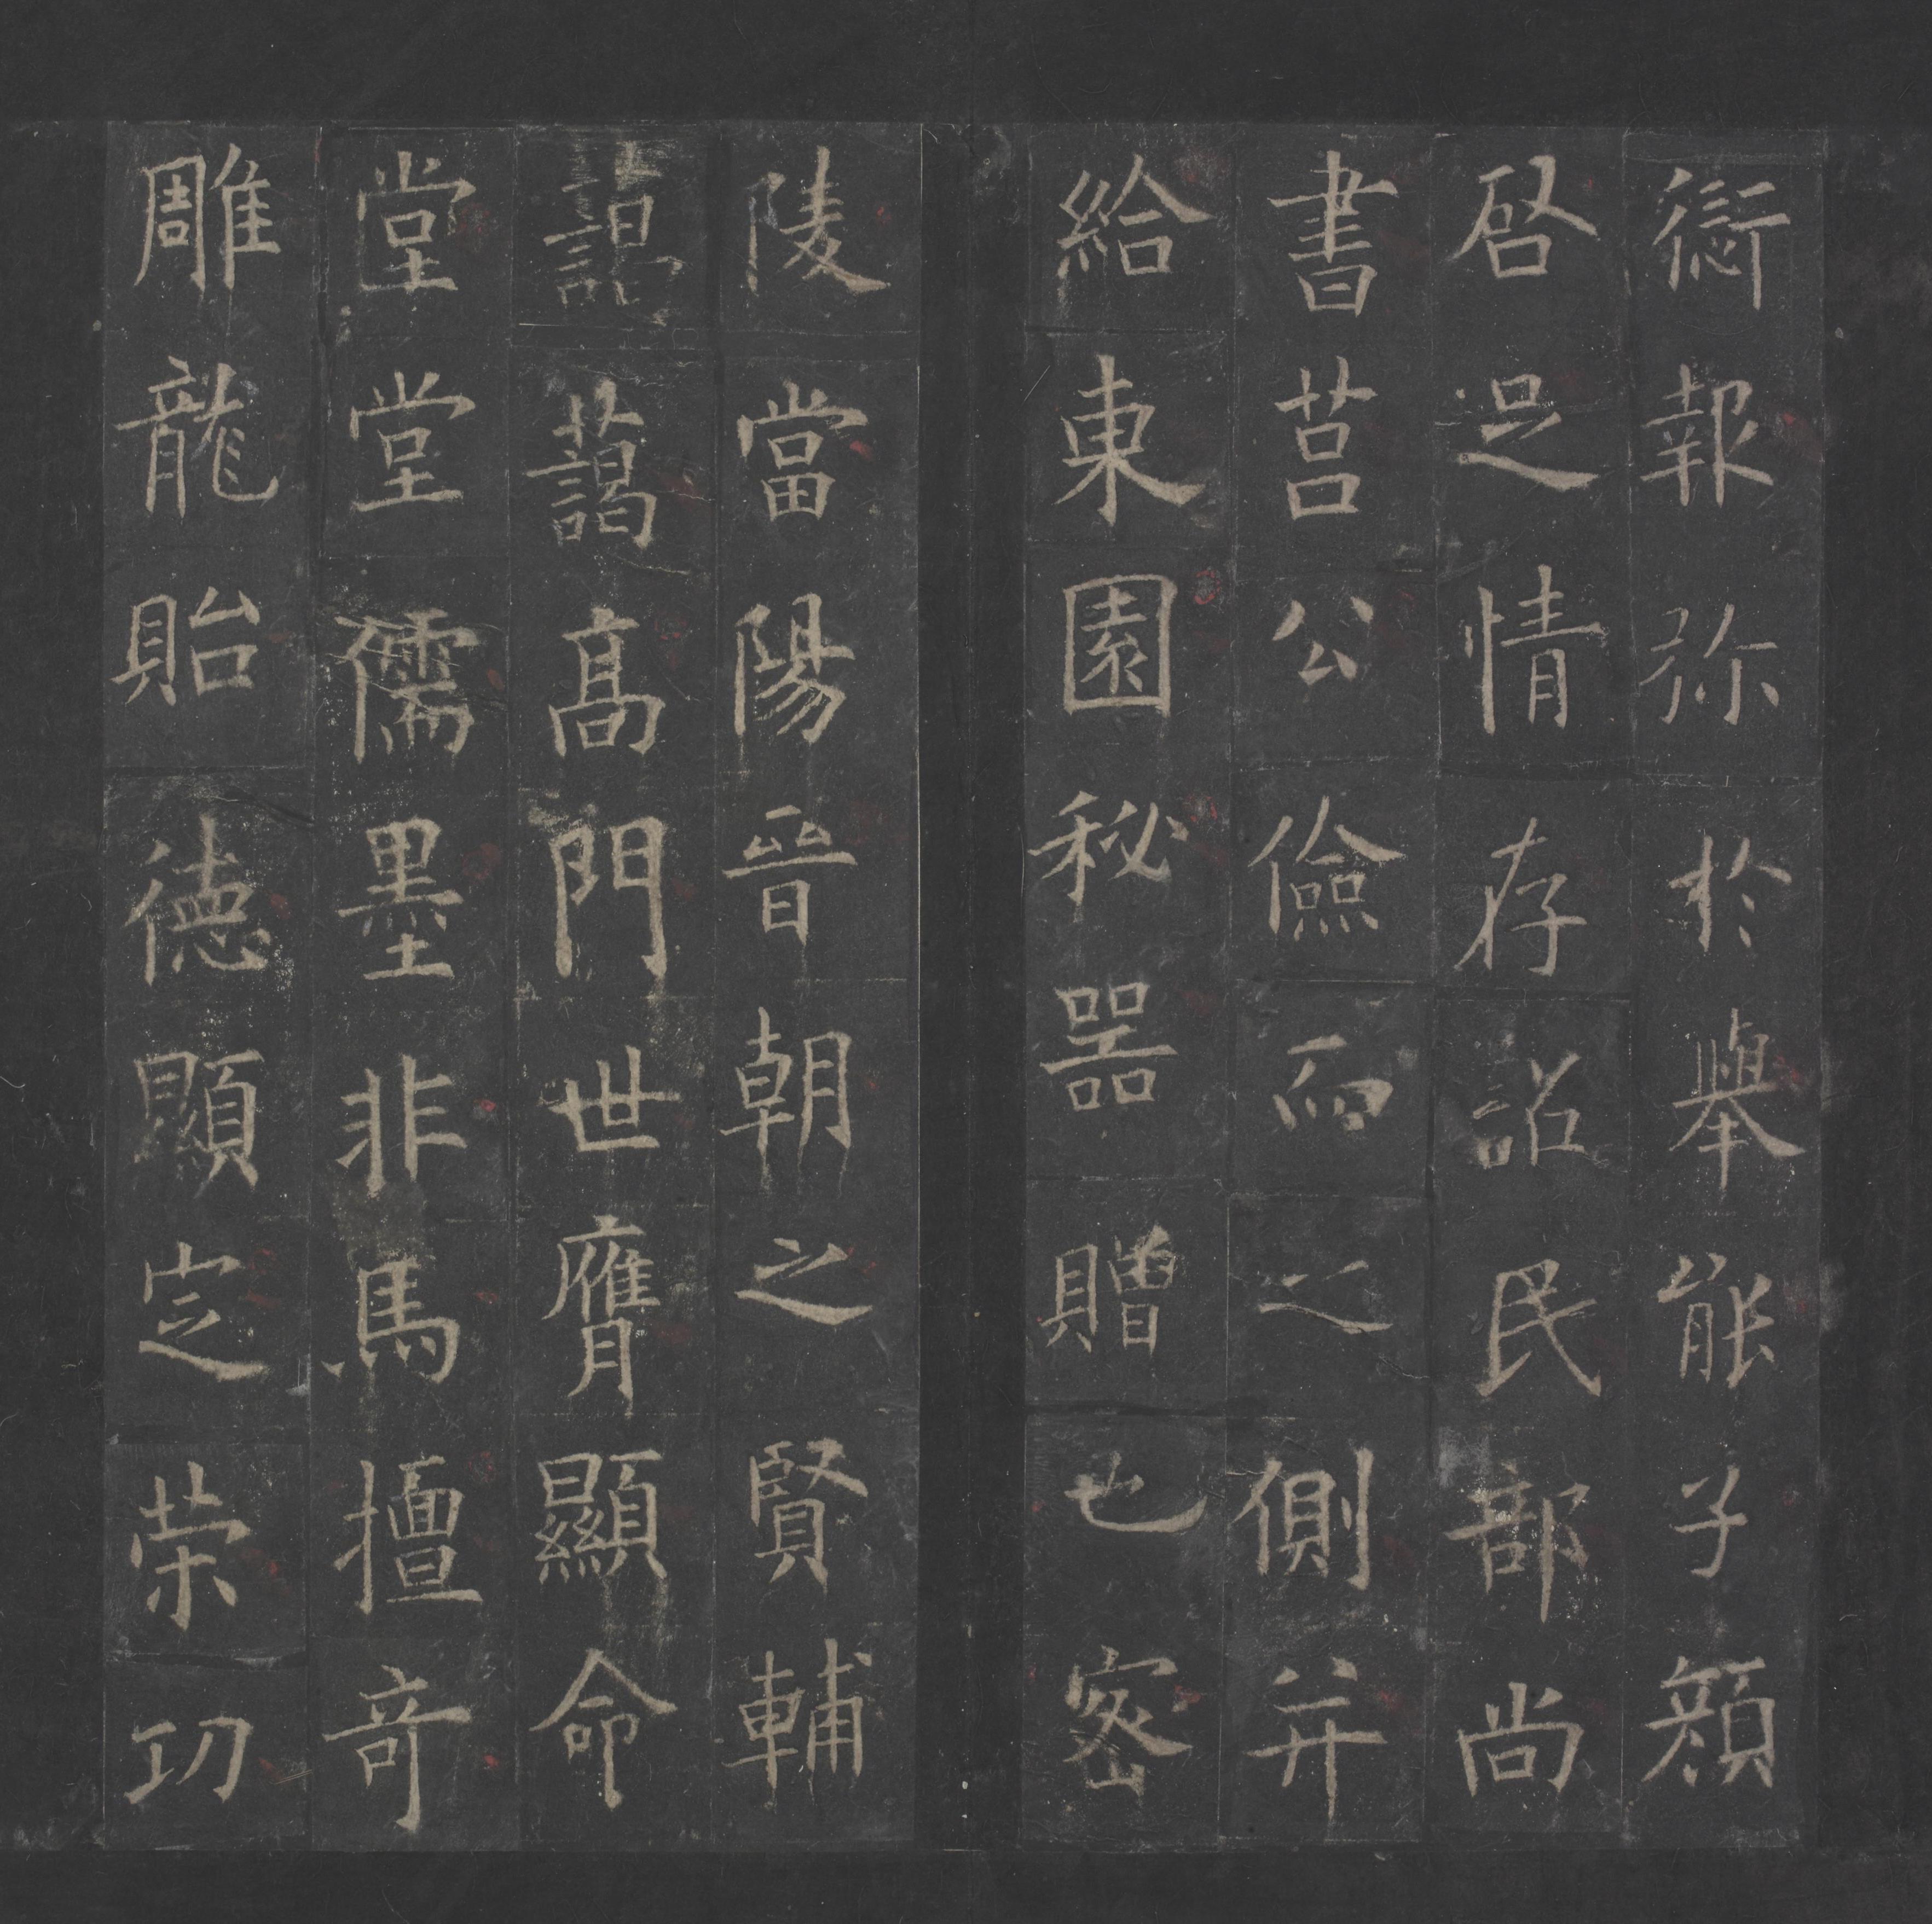 𠎝報弥於舉能子顏
啓足情存詔民部尚
書莒公儉而之側弁
給東園秘器贈也密
陵當陽晉朝之賢輔
藹藹高門世膺顯命
堂堂儒墨非馬擅奇
雕龍貽德顯定榮功